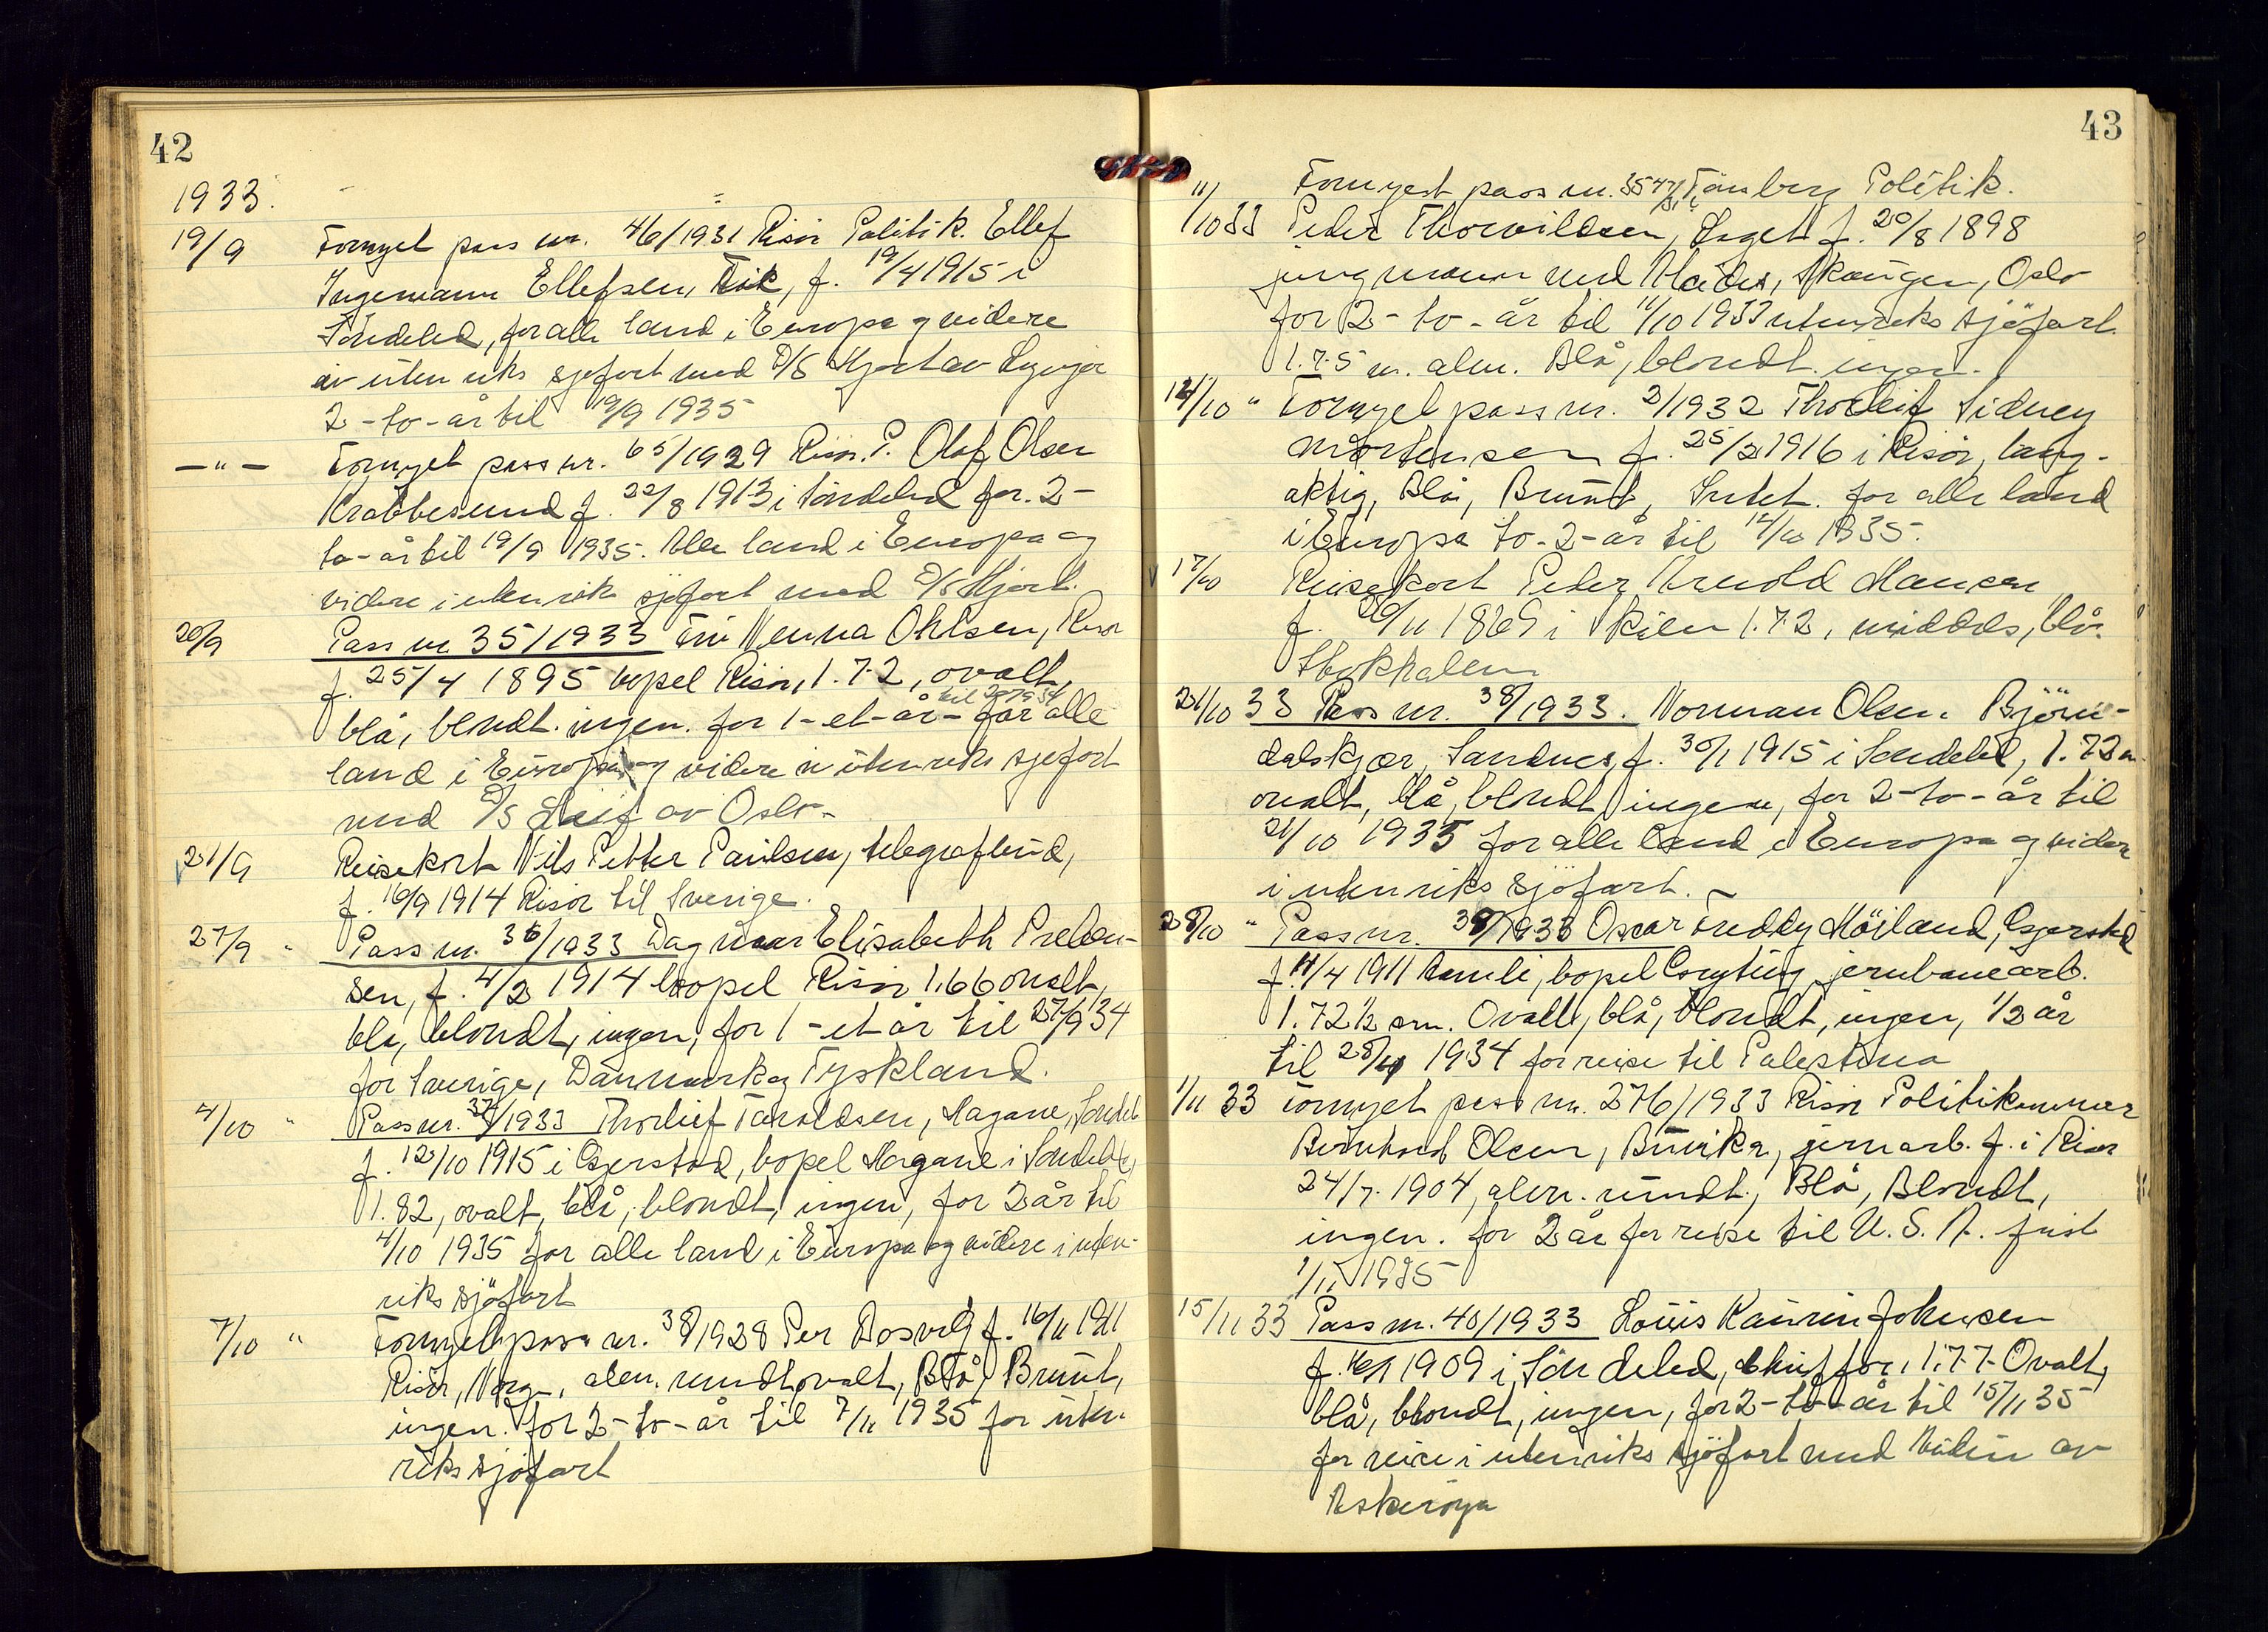 42
1933.
19/9 Fornyet pass nr. 46/1931 Risör Politik. Ellef
Ingemann Ellefsen, f. 19/4 1915 i
Söndeled, for alle land i Europa og videre
av utenriks sjøfart med D/S Hjort av Lyngør
2-to-år til 19/9 1935
—"— Fornyet pass nr. 65/1929 Risör. P. Olaf Olsen
Krabbesund f. 22/8 1913 i Söndeled for. 2-
to-år til 19/9 1935. Alle land i Europa og
videre i utenriks sjøfart med D/S Hjort.
20/9 Pass nr 35/1933 Fru Nenna Ohlsen, Risør
f. 25/4 1895 bopel Risör, 1.72, ovalt,
til 20/9 34
blå, blondt. ingen. for 1-et-år- for alle
land i Europa og videre i utenriks sjøfart
med D/S Leif av Oslo-
21/9 Reisekort Nils Petter Paulsen, telegrafbud,
f. 16/9 1914 Risör til Sverige.
27/9 " Pass nr. 36/1933 Dagmar Elisabeth Preben-
sen, f. 4/2 1914 bopel Risör 1,66 ovalt,
blå, blondt, ingen, for 1-et år til 27/9 34
for Sverige, Danmark og Tyskland.
4/10 " Pass nr. 37/1933 Thorleif Taraldsen, Hagane, Söndel.
f. 12/10 1915 i Gjerstad, bopel Hagane i Söndeled,
1.82, ovalt, blå, blondt, ingen, for 2 år til
4/10 1935 for alle land i Europa og videre i uten-
riks sjöfart
7/10 " Fornyet pass nr. 38/1928 Per Dosvig f. 16/11 1911
Risör, Norge, alm. rundt ovalt, Blå, Brunt,
ingen. for 2-to-år til 7/11 1935 for uten-
riks sjöfart
43
11/10 33 Fornyet pass nr. 3547/31 Tönsberg Politik.
Peder Thorvildsen, f. 20/8 1898
jungmann med Alcides, Skaugen, Oslo
for 2-to-år til 11/10 1933 utenriks sjöfart.
1.75 m. alm. Blå, blondt. ingen.
12/10 " Fornyet pass nr. 2/1932 Thorleif Sidney
Mortensen f. 25/2 1916 i Risör, lang-
aktig, Blå, Brunt, Intet. for alle land
i Europa to-2-år til 12/10 1935.
17/10 Reisekort Peder Arnold Hansen
f. 26/11 1869 i Kilen 1.72, middels, blå.
Stokkalen
21/10 33 Pass nr. 38/1933. Norman Olsen. Björn-
dalskjær, Sandnes, f. 30/1 1915 i Söndeled, 1.73 m.
ovalt, blå, blondt, ingen, for 2-to-år til
21/10 1935 for alle land i Europa og videre
i utenriks sjöfart. -
28/10 " Pass nr. 39/1933 Oscar Freddy Höiland, Gjerstad
f. 11/4 1911 Åmli, bopel Gryting, jernbanearb.
1.72 1/2 cm. Ovalt, blå, blondt, ingen, 1/2 år
til 28/4 1934 for reise til Palestina
1/11 33 Fornyet pass nr. 276/1933 Risör Politikammer
Bernhard Olsen, Buvika, jernarb. f. i Risør
24/7. 1904, alm. rundt., Blå, Blondt,
ingen. for 2 år for reise til U.S.A. frist
1/11 1935
15/11 33 Pass nr. 40/1933 Louis Kaurin Johnsen
f. 16/1 1909 i Söndeled, chauffør, 1.77. Ovalt,
blå, blondt, ingen, for 2-to-år til 15/11 35
for reise i utenriks sjöfart med av
Askeröya